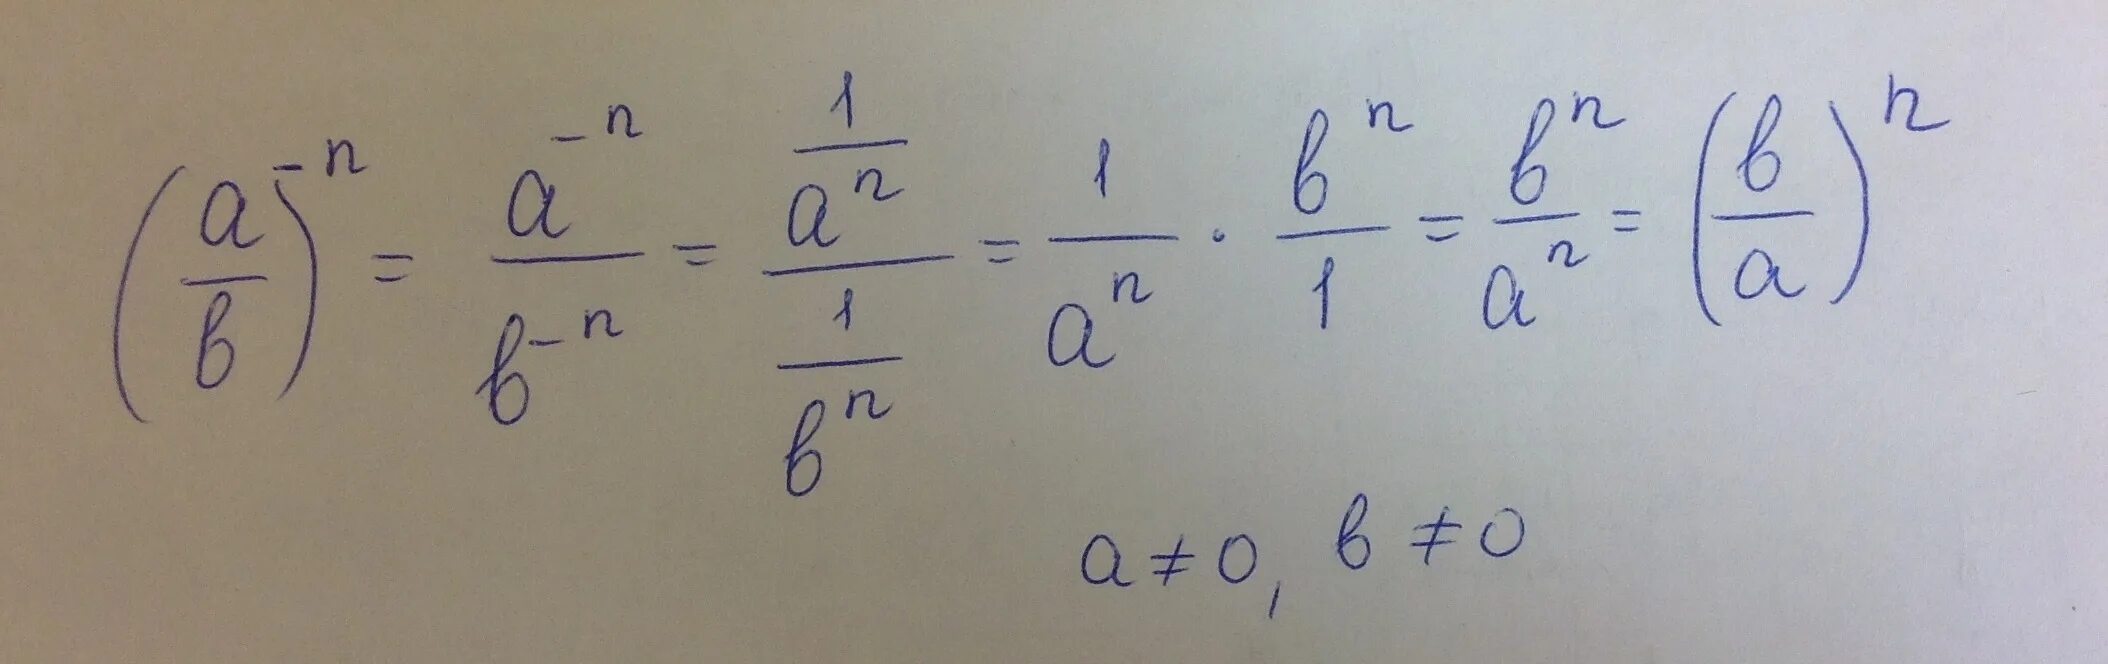 (a/b)^{-n} = a^{-n}/b^{-n} = (1/a^n)/(1/b^n) = 1/a^n · b^n/1 = b^n/a^n = (b/a)^n
a ≠ 0, b ≠ 0